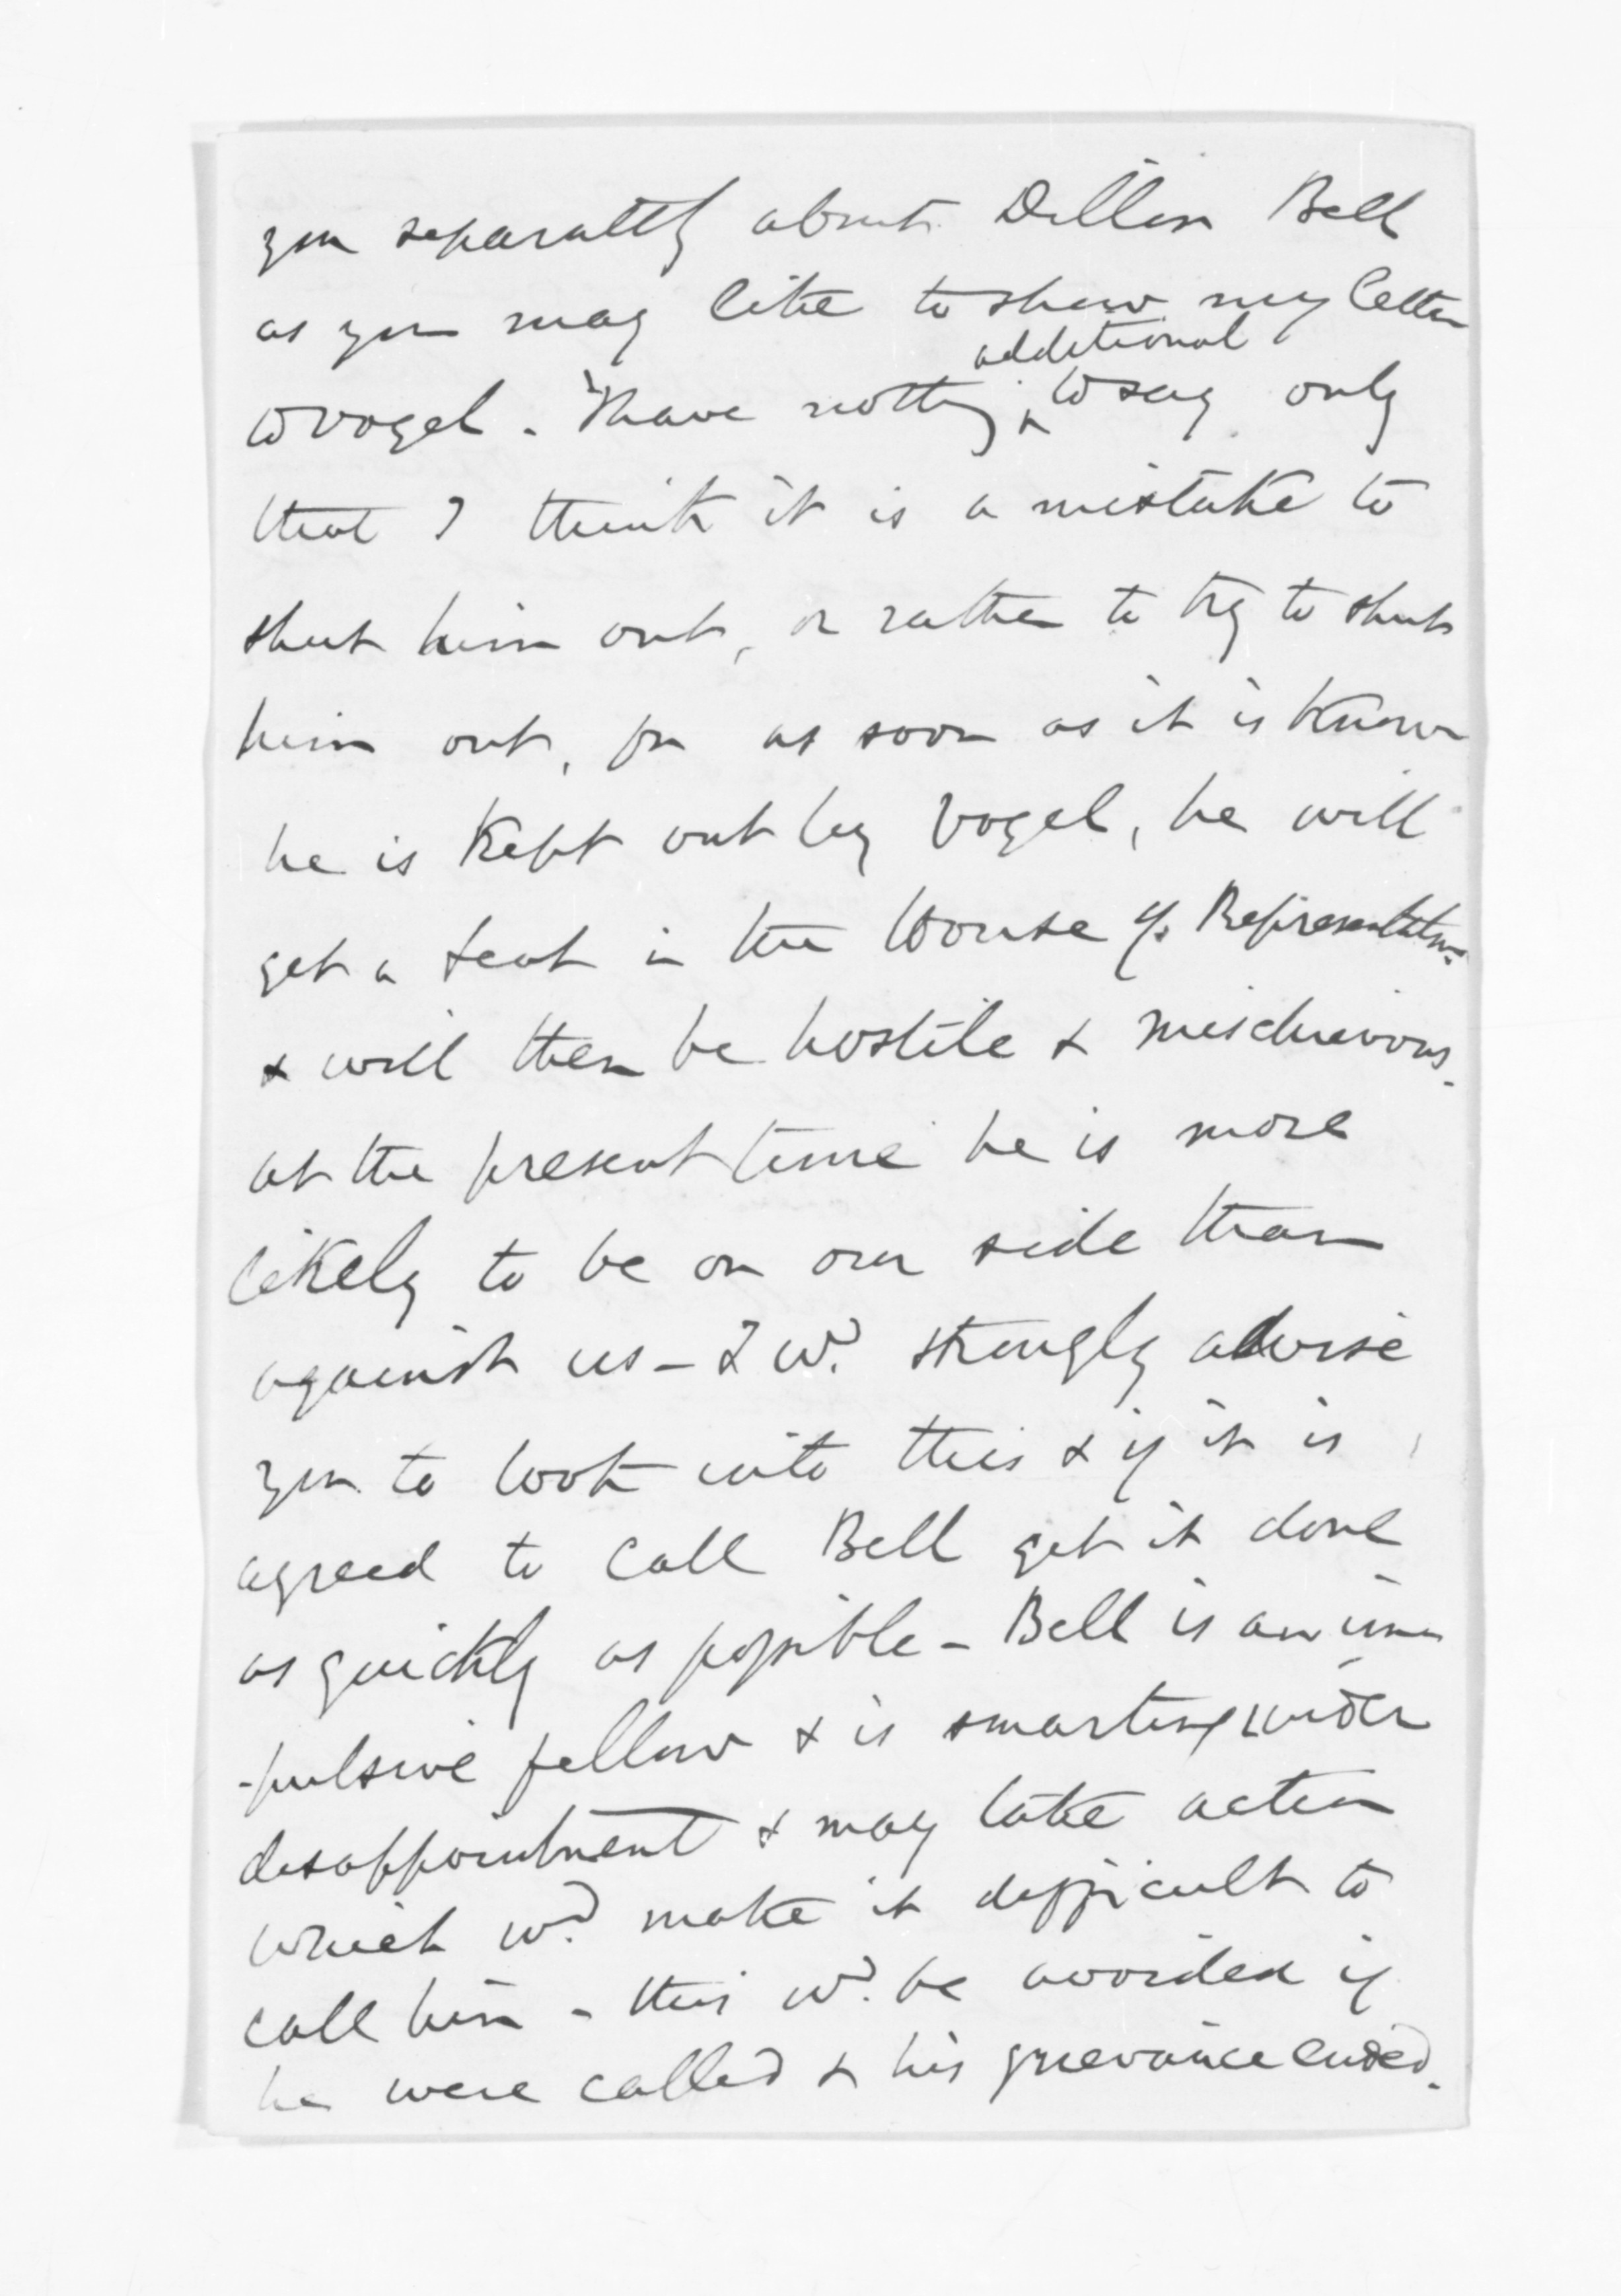 you separately about Dillon Bell
as you may like to show my letter
to Vogel. I have nothing ^additional to say only
that I think it is a mistake to
shut him out, or rather to try to shut
him out, for as soon as it is known
he is kept out by Vogel, he will
get a seat in the House of Representatives
& will then be hostile & mischievous.
at the present time he is more
likely to be on our side than
against us - I wd. strongly advise
you to look into this & if it is
agreed to call Bell get it done
as quickly as possible - Bell is an im
-pulsive fellow & is smarting under
disappointment & may take action
which wd. make it difficult to
call him - this wd. be avoided if
he were called & his grievance ended.